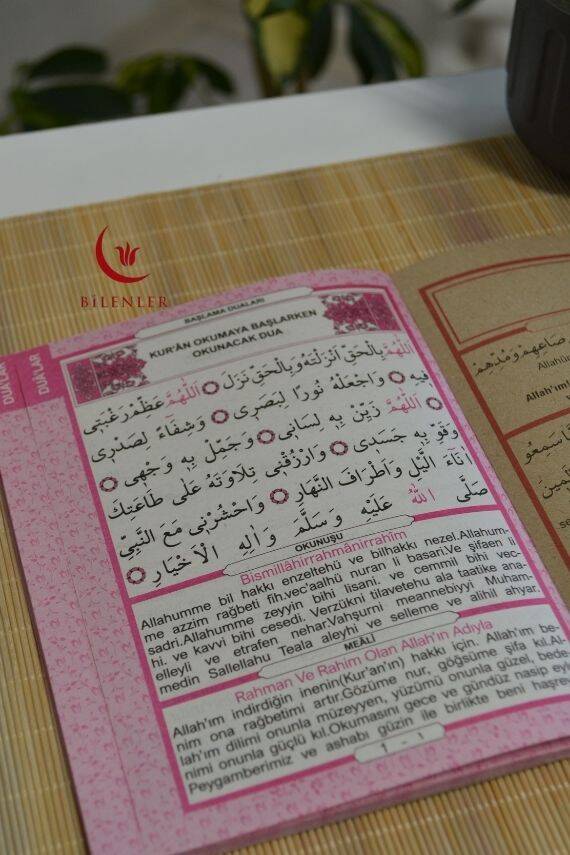 BİLENLER
DUALAR
DUALAR
BAŞLAMA DUALARI
KUR'ÂN OKUMAYA BAŞLARKEN
OKUNACAK DUA
اَللّٰهُمَّ بِالْحَقِّ اَنْزَلْتَهُ وَبِالْحَقِّ نَزَلَ اَللّٰهُمَّ عَظِّمْ رَغْبَتِى
فِيهِ وَاجْعَلْهُ نُورًا لِبَصَرِى وَشِفَاءً لِصَدْرِى
اَللّٰهُمَّ زَيِّنْ بِهِ لِسَانِى وَجَمِّلْ بِهِ وَجْهِى
وَقَوِّ بِهِ جَسَدِى وَارْزُقْنِى تِلَاوَتَهُ عَلَى طَاعَتِكَ
اٰنَاءَ الَّيْلِ وَاَطْرَافَ النَّهَارِ وَاحْشُرْنِى مَعَ النَّبِىِّ
صَلَّى اللّٰهُ عَلَيْهِ وَسَلَّمَ وَاٰلِهِ الْاَخْيَارِ
OKUNUŞU
Bismillâhirrahmânirrahîm
Allahumme bil hakkı enzeltehü ve bilhakkı nezel.Allahum-
me azzim rağbeti fih.vec'aalhü nuran li basari.Ve şifaen li
sadri.Allahumme zeyyin bihi lisani. ve cemmil bihi vec-
hi. ve kavvi bihi cesedi. Verzükni tilavetehu ala taatike ana-
elleyli ve etrafen nehar.Vahşurni meannebiyyi Muham-
medin Sallellahu Teala aleyhi ve selleme ve alihil ahyar.
MEÂLİ
Rahman Ve Rahim Olan Allah'ın Adıyla
Allah'ım indirdiğin inenin(Kur'an'ın) hakkı için. Allah'ım be-
nim ona rağbetimi artır.Gözüme nur, göğsüme şifa kıl.Al-
lah'ım dilimi onunla müzeyyen, yüzümü onunla güzel, bede-
nimi onunla güçlü kıl.Okumasını gece ve gündüz nasip eyle
Peygamberimiz ve ashabı güzin ile birlikte beni haşre
1 - 1
صَاعِهِمْ وَمُدِّهِمْ
Allah'ım!